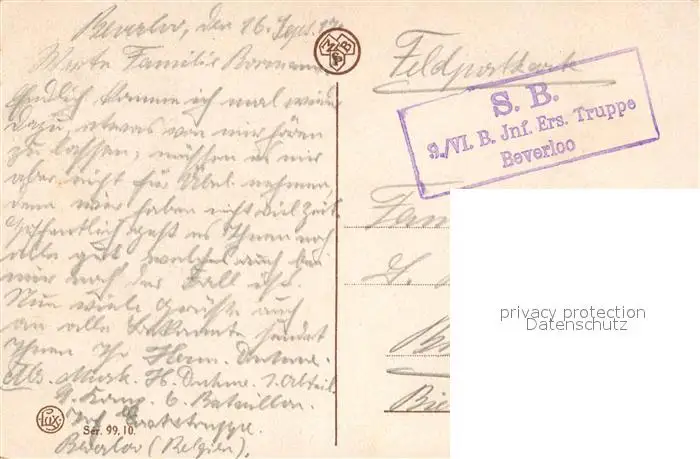 Beverloo, den 16. Sept. 17.
Werte Familie Bormann
Endlich komme ich mal wieder
dazu, etwas von mir hören
zu lassen, müssen es mir
aber nicht für Übel nehmen,
denn wir haben nicht viel Zeit.
Hoffentlich geht es Ihnen noch
alle gut, welches auch bei
mir noch der Fall ist.
Nun viele Grüße auch
an alle Bekannte sendet
Ihnen Ihr Herm.
Abs. Musk. H. 1. Abteil.
9. Komp. 6. Bataillon.
Inf. Ersatztruppe.
Beverloo (Belgien).
Lux
Ser. 99, 10.
Feldpostkarte
S. B.
9./VI. B. Jnf. Ers. Truppe
Beverloo
Fam
privacy protection
Datenschutz
Bie